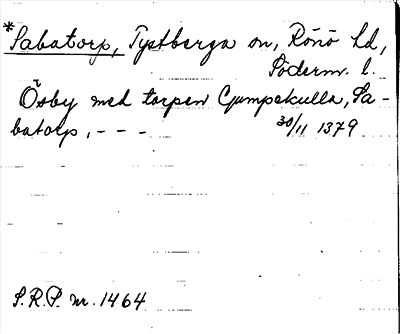 *Sabatorp, Tystberga sn, Rönö hd,
Söderm. l.
Ösby med torpen Gumpekulla, Sa-
batorp, - - -  30/11 1379
S.R.P. nr. 1464